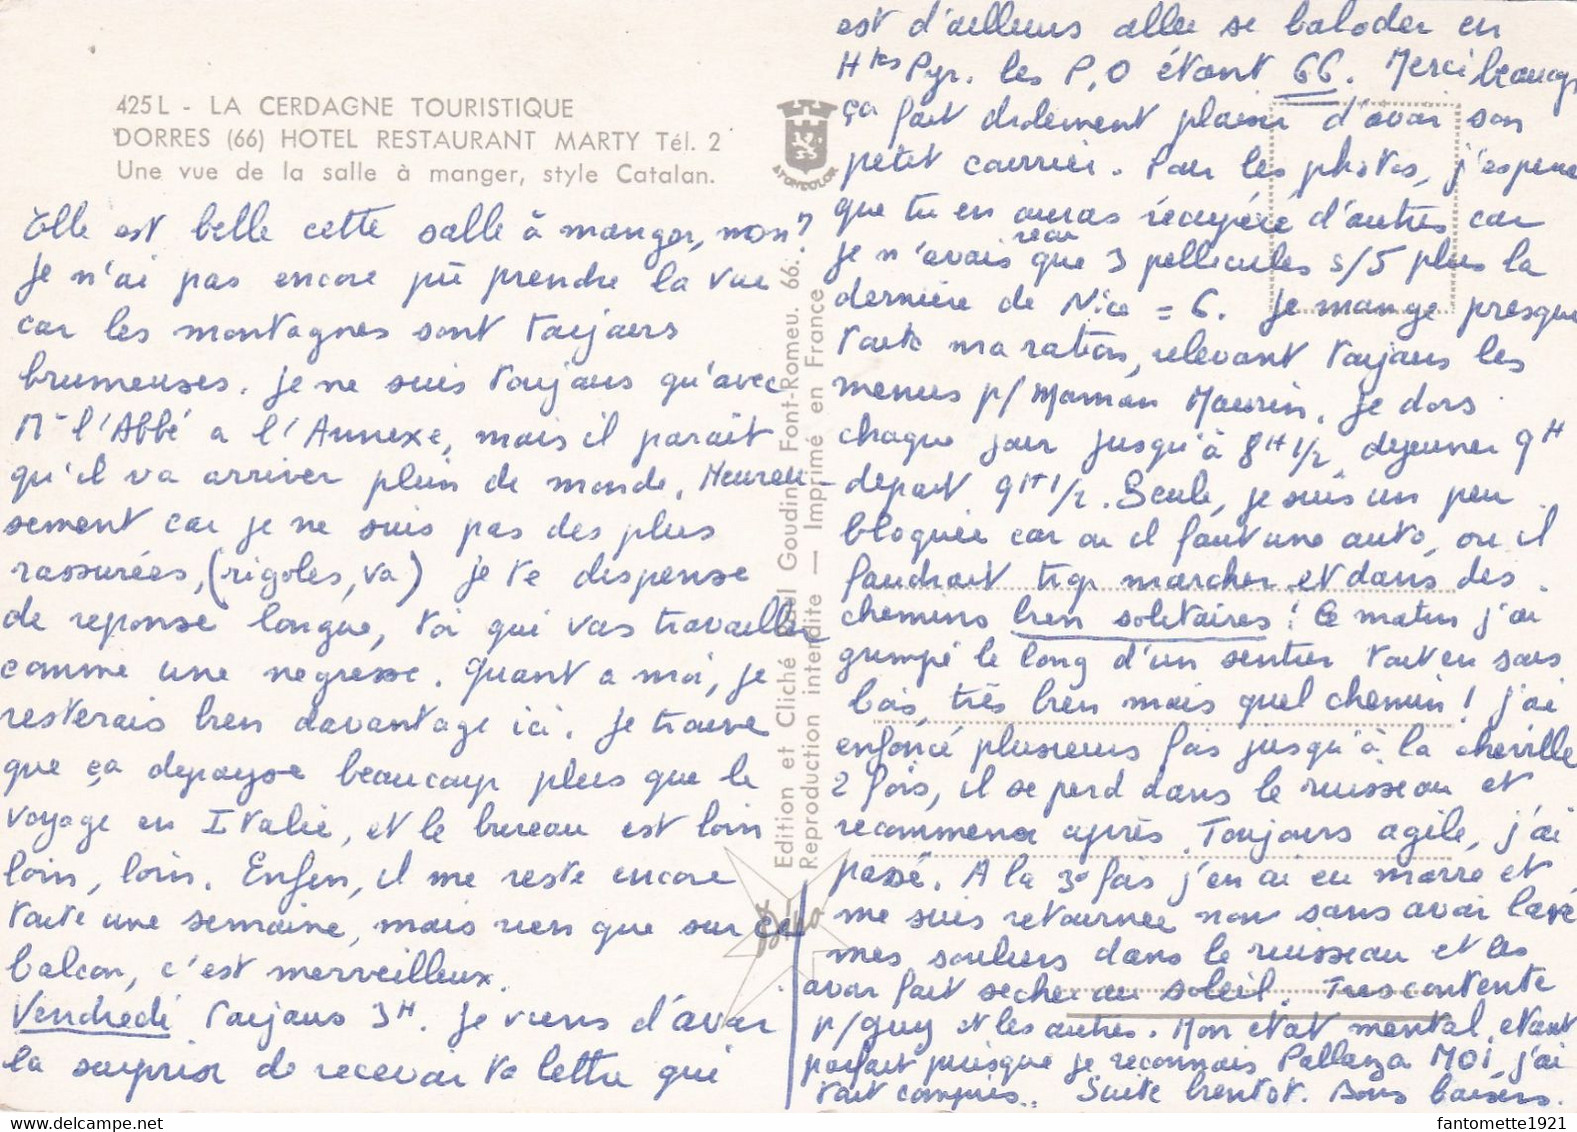 425 L - LA CERDAGNE TOURISTIQUE
DORRES (66) HOTEL RESTAURANT MARTY Tél. 2
Une vue de la salle à manger, style Catalan.
Elle est belle cette salle à manger, non?
Je n'ai pas encore pu prendre la vue
car les montagnes sont toujours
brumeuses. Je ne suis toujours qu'avec
Mr l'Abbé a l'Annexe, mais il parait
qu'il va arriver plein de monde. Heureu-
sement car je ne suis pas des plus
rassurées, (rigoles, va) je te dispense
de reponse longue, toi qui vas travailler
comme une negresse. Quant a moi, je
resterais bien davantage ici. Je trouve
que ça depayse beaucoup plus que le
voyage en Italie, et le bureau est loin
loin, loin. Enfin, il me reste encore
toute une semaine, mais rien que sur ce
balcon, c'est merveilleux.
Vendredi toujours 3H. Je viens d'avoir
la surprise de recevoir ta lettre qui
Edition et Cliché Paul Goudin Font-Romeu. 66.
Reproduction interdite — Imprimé en France
est d'ailleurs allee se balader en
Htes Pyr. les P,O étant 66. Merci beaucp
ça fait drolement plaisir d'avoir son
petit courrier. Pour les photos, j'espere
que tu en auras récupéré d'autres car
je n'avais que 3 pellicules s/5 plus la
dernière de Nice = 6. Je mange presque
toute ma ration, relevant toujours les
menus p/ Maman Maurin. Je dors
chaque jour jusqu'à 8H 1/2, dejeuner 9H
depart 9H 1/2. Seule, je suis un peu
bloquée car ou il faut une auto, ou il
faudrait trop marcher et dans des
chemins bien solitaires! Ce matin j'ai
grimpé le long d'un sentier tout en sous
bois, très bien mais quel chemin! J'ai
enfoncé plusieurs fois jusqu'à la cheville
2 fois, il se perd dans le ruisseau et
recommence après. Toujours agile, j'ai
passé. A la 3e fois j'en ai eu marre et
me suis retournee non sans avoir lavé
mes souliers dans le ruisseau et les
avoir fait secher au soleil. Tres contente
p/ Guy et les autres. Mon etat mental, etant
parfait puisque je reconnais Pallanza MOI, j'ai
tout compris. Suite bientot. Bons baisers.
fantomette1921